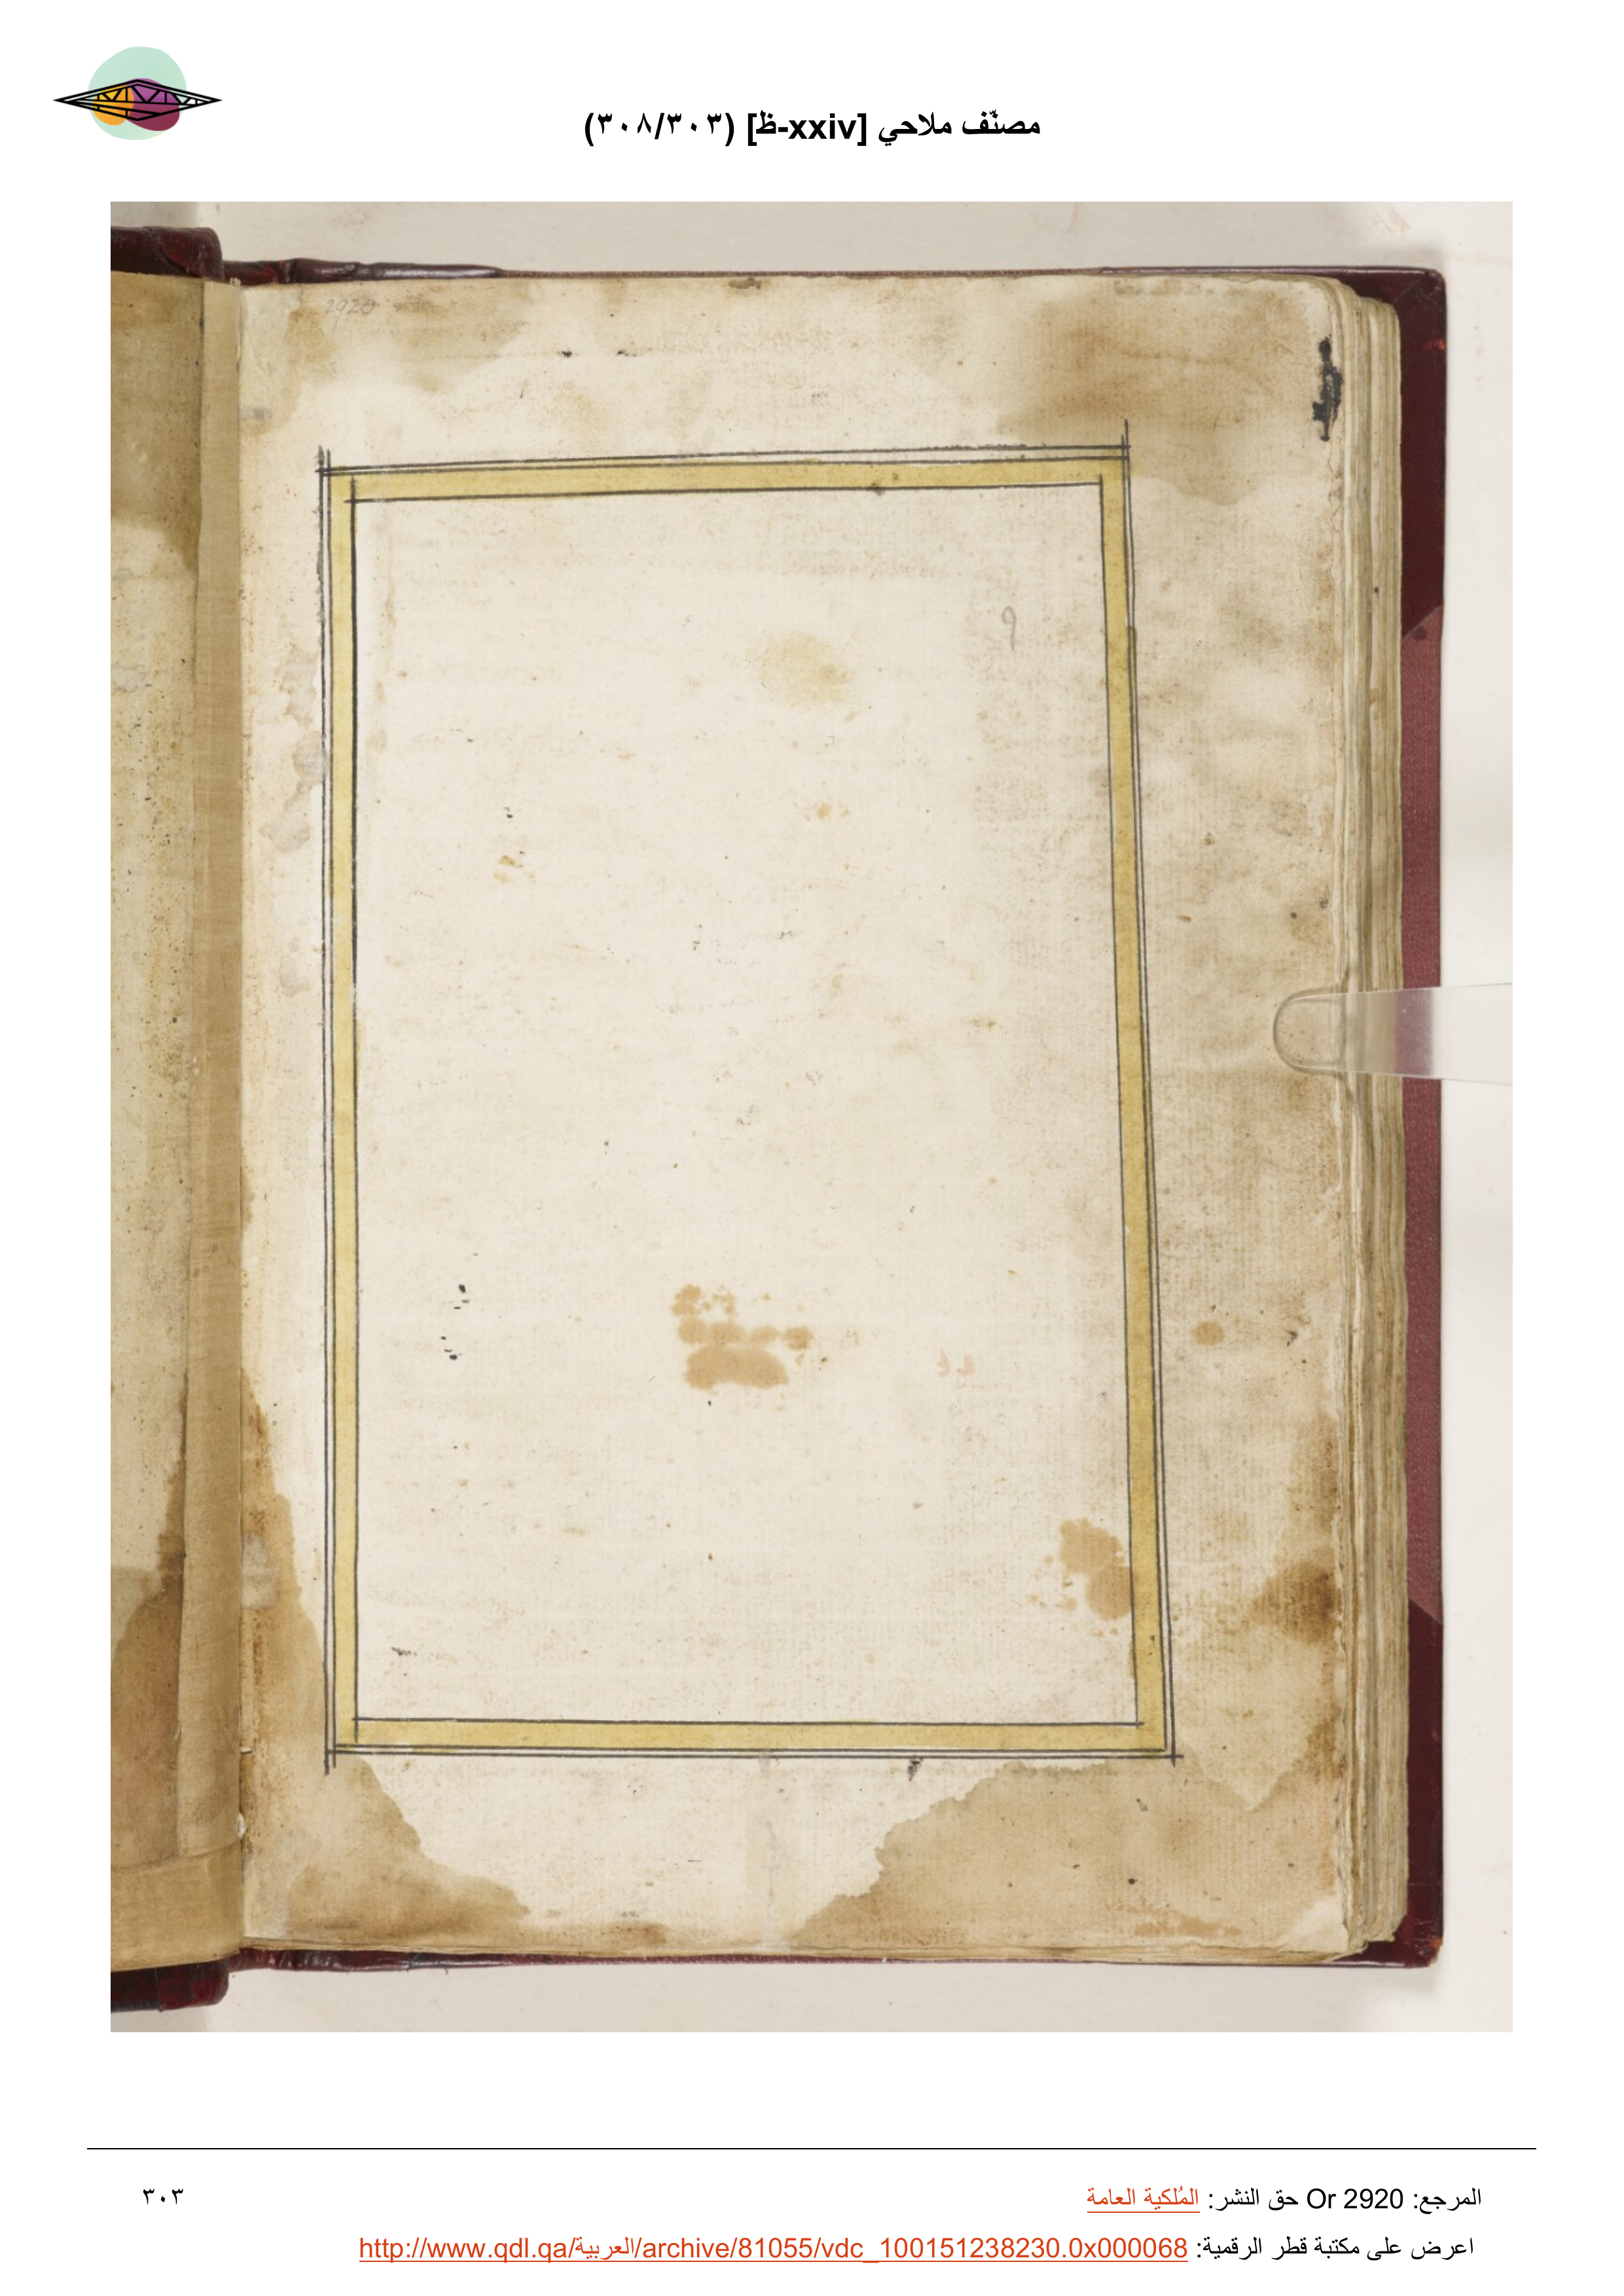 مصنّف ملاحي [xxiv-ظ] (٣٠٨/٣٠٣)
2920
9
المرجع: Or 2920 حق النشر: المُلكية العامة
٣٠٣
اعرض على مكتبة قطر الرقمية: http://www.qdl.qa/العربية/archive/81055/vdc_100151238230.0x000068